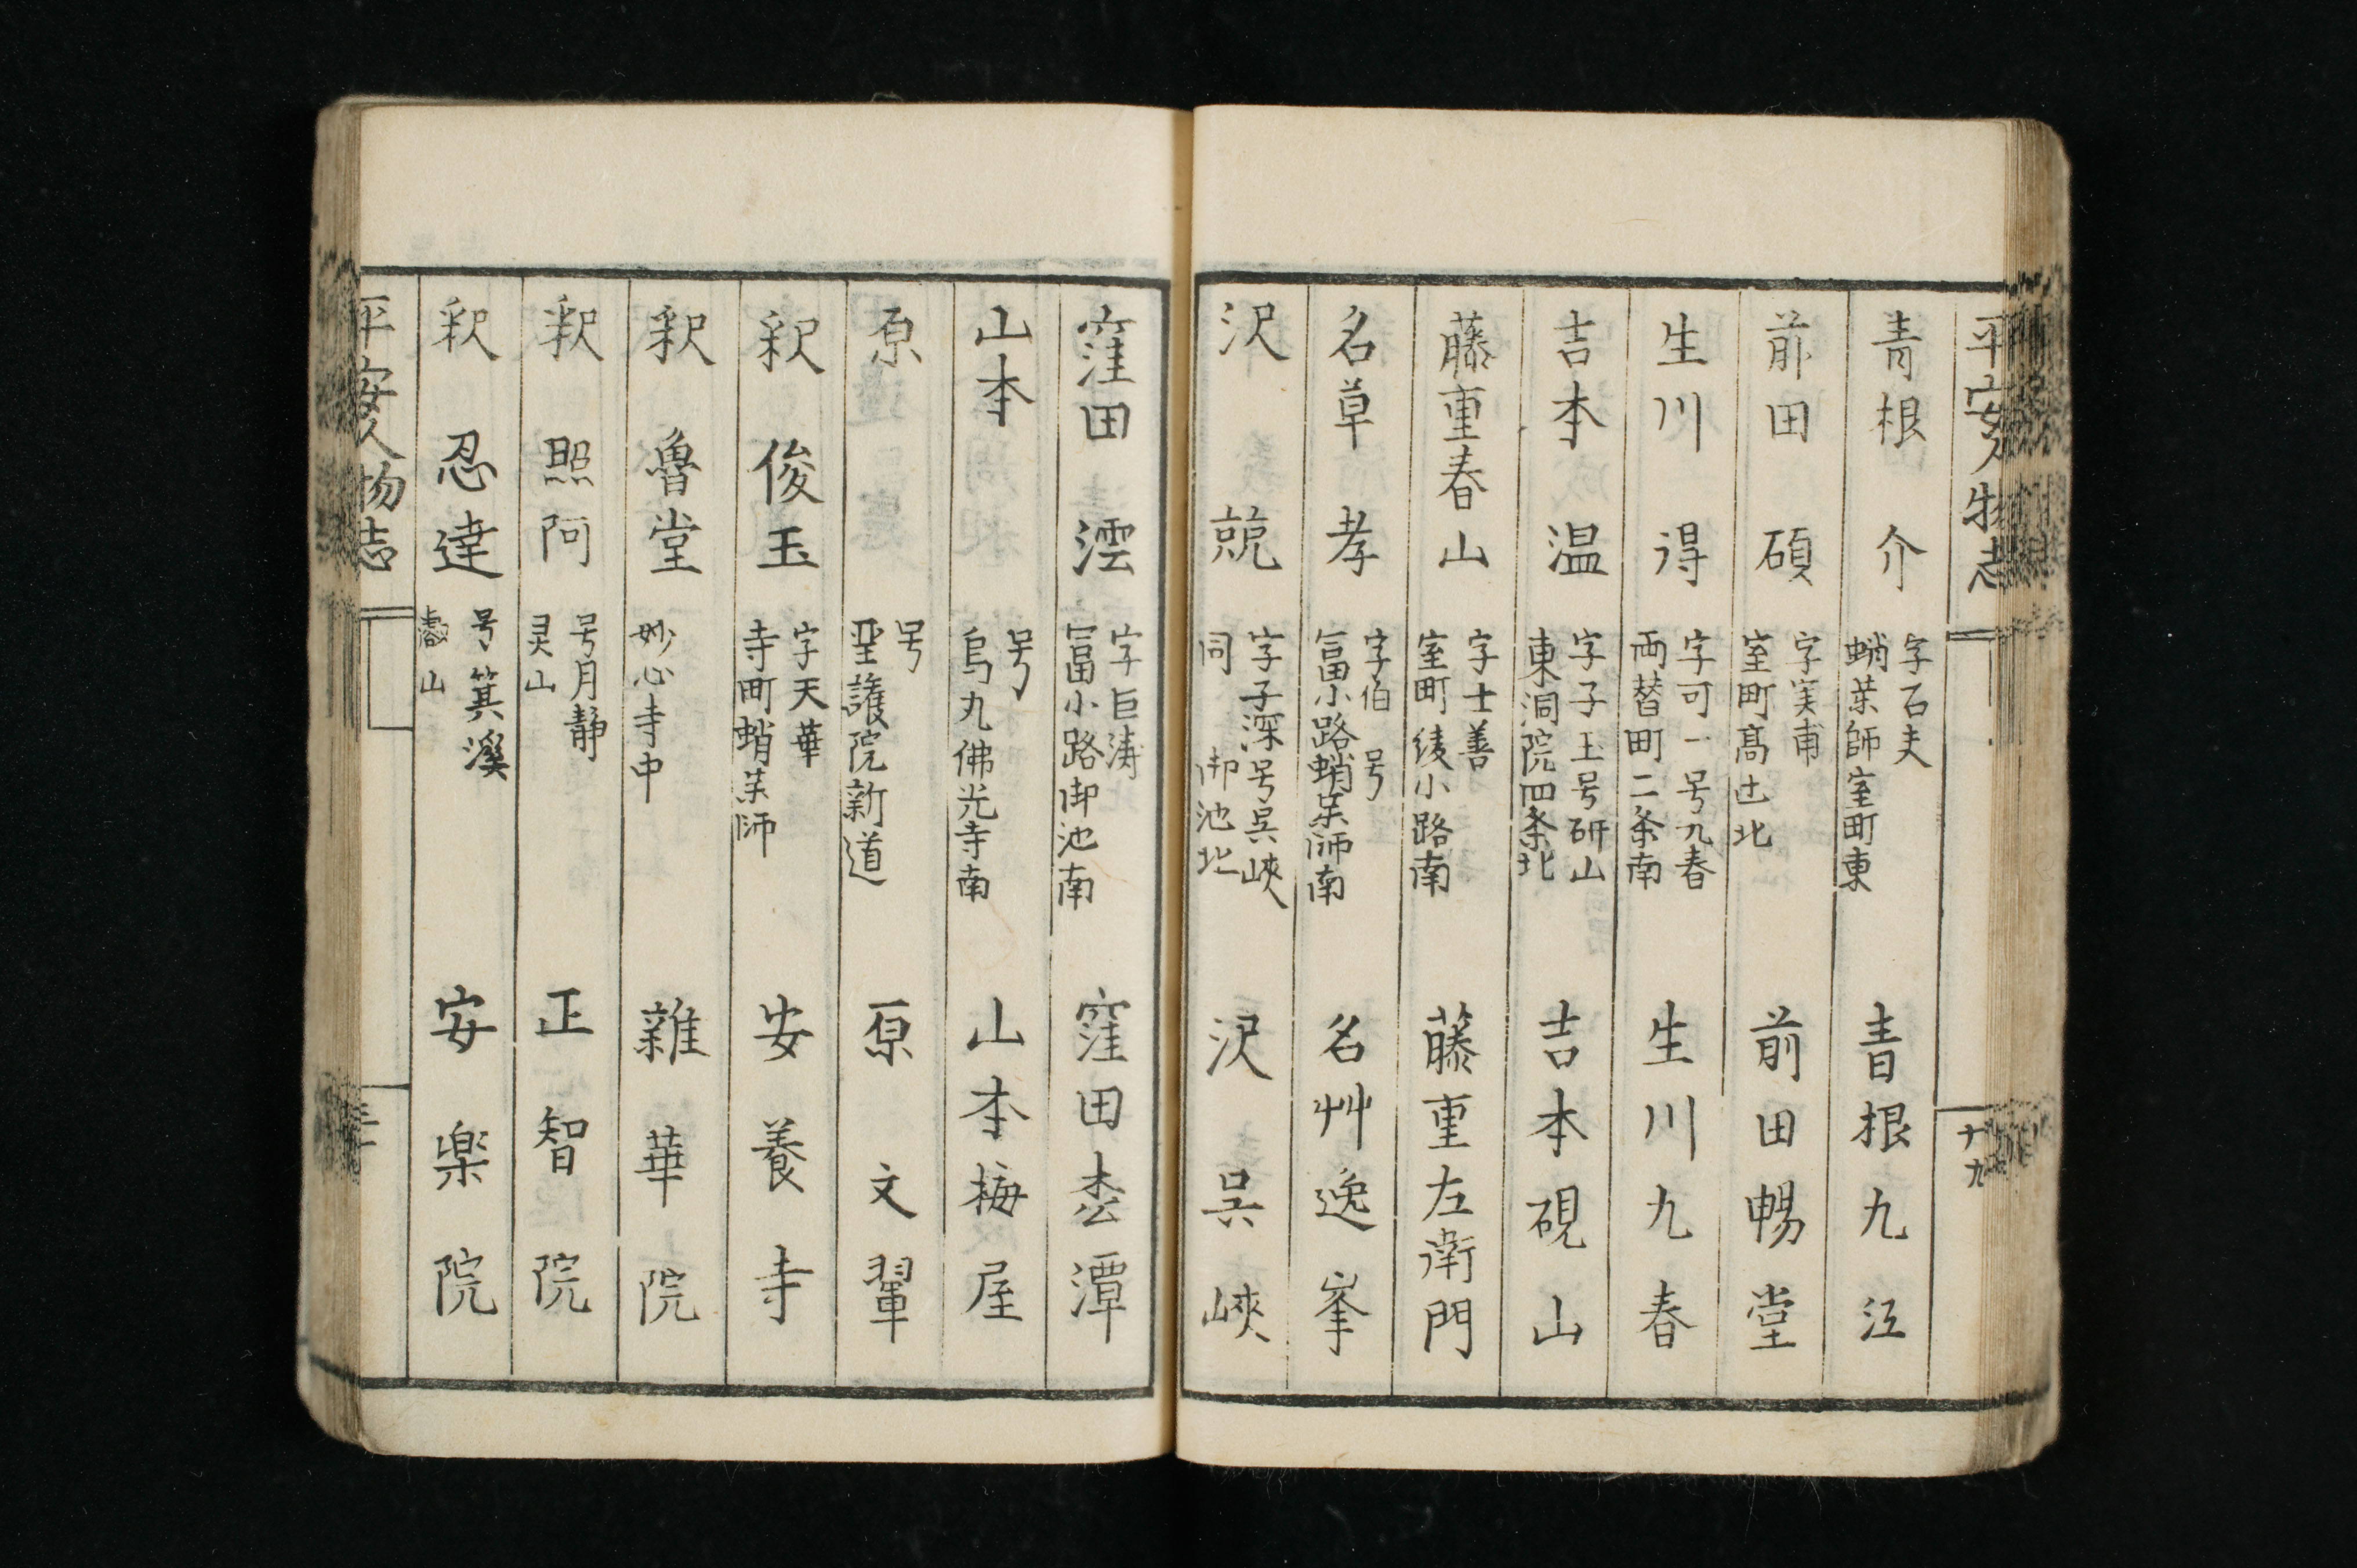 平安人物志
十九
青根介 字石夫 蛸薬師室町東 青根九江
前田碩 字実甫 室町高辻北 前田暢堂
生川得 字可一号九春 両替町二条南 生川九春
吉本温 字子玉号研山 東洞院四条北 吉本硯山
藤重春山 字士善 室町綾小路南 藤重左衛門
名草孝 字伯 号 富小路蛸薬師南 名艸逸峯
沢競 字子深号呉峡 同 御池北 沢呉峡
窪田澐 字巨涛 富小路御池南 窪田枩潭
山本 号 烏丸佛光寺南 山本梅屋
原 号 聖護院新道 原文翬
釈俊玉 字天華 寺町蛸薬師 安養寺
釈魯堂 妙心寺中 雑華院
釈照阿 号月静 灵山 正智院
釈忍達 号箕溪 山 安楽院
平安人物志